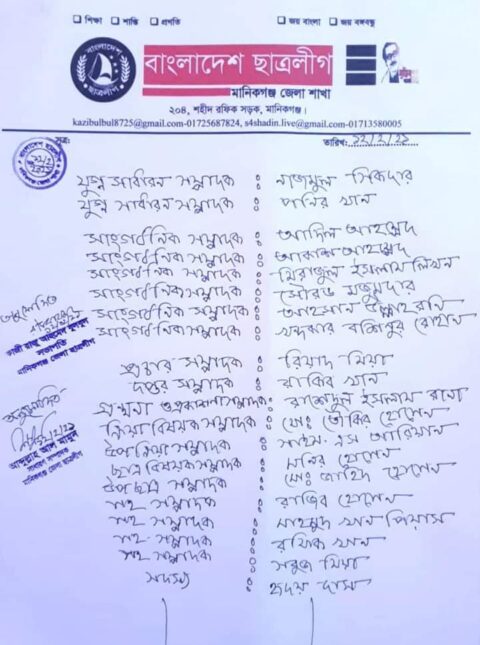 ❑ শিক্ষা ❑ শান্তি ❑ প্রগতি ❑ জয় বাংলা ❑ জয় বঙ্গবন্ধু
বাংলাদেশ ছাত্রলীগ
মানিকগঞ্জ জেলা শাখা
২০৪, শহীদ রফিক সড়ক, মানিকগঞ্জ।
kazibulbul8725@gmail.com-01725687824, s4shadin.live@gmail.com-01713580005
সূত্র: তারিখ: ১২/২/২১
যুগ্ন সাধারন সম্পাদক : নাজমুল সিকদার
যুগ্ন সাধারন সম্পাদক : পানির খান
সাংগঠনিক সম্পাদক : আদিল আহম্মেদ
সাংগঠনিক সম্পাদক : আকাশ আহম্মেদ
সাংগঠনিক সম্পাদক : মিরাজুল ইসলাম লিখন
সাংগঠনিক সম্পাদক : সৌরভ মজুমদার
সাংগঠনিক সম্পাদক : আহসান উল্লাহ রনি
সাংগঠনিক সম্পাদক : খন্দকার
প্রচার সম্পাদক : রিয়াদ মিয়া
দপ্তর সম্পাদক : রাকিব খান
গ্রন্থনা ও প্রকাশনা সম্পাদক : রাশেদুল ইসলাম রানা
ক্রিয়া বিষয়ক সম্পাদক : মোঃ তৌকির হোসেন
উপ ক্রিয়া সম্পাদক : এস আরিয়ান
ছাত্র বিষয়ক সম্পাদক : মনির হোসেন
উপ ছাত্র সম্পাদক : মোঃ জাহিদ হোসেন
সহ সম্পাদক : রাজিব হোসেন
সহ সম্পাদক : মাহমুদ খান পিয়াস
সহ সম্পাদক : রফিক খান
সহ সম্পাদক : সবুজ মিয়া
সদস্য : হৃদয় দাস
কাজী রাজু আহমেদ বুলবুল
সভাপতি
মানিকগঞ্জ জেলা ছাত্রলীগ
অনুমোদিত
আব্দুল্লাহ আল মামুন
সাধারণ সম্পাদক
মানিকগঞ্জ জেলা ছাত্রলীগ